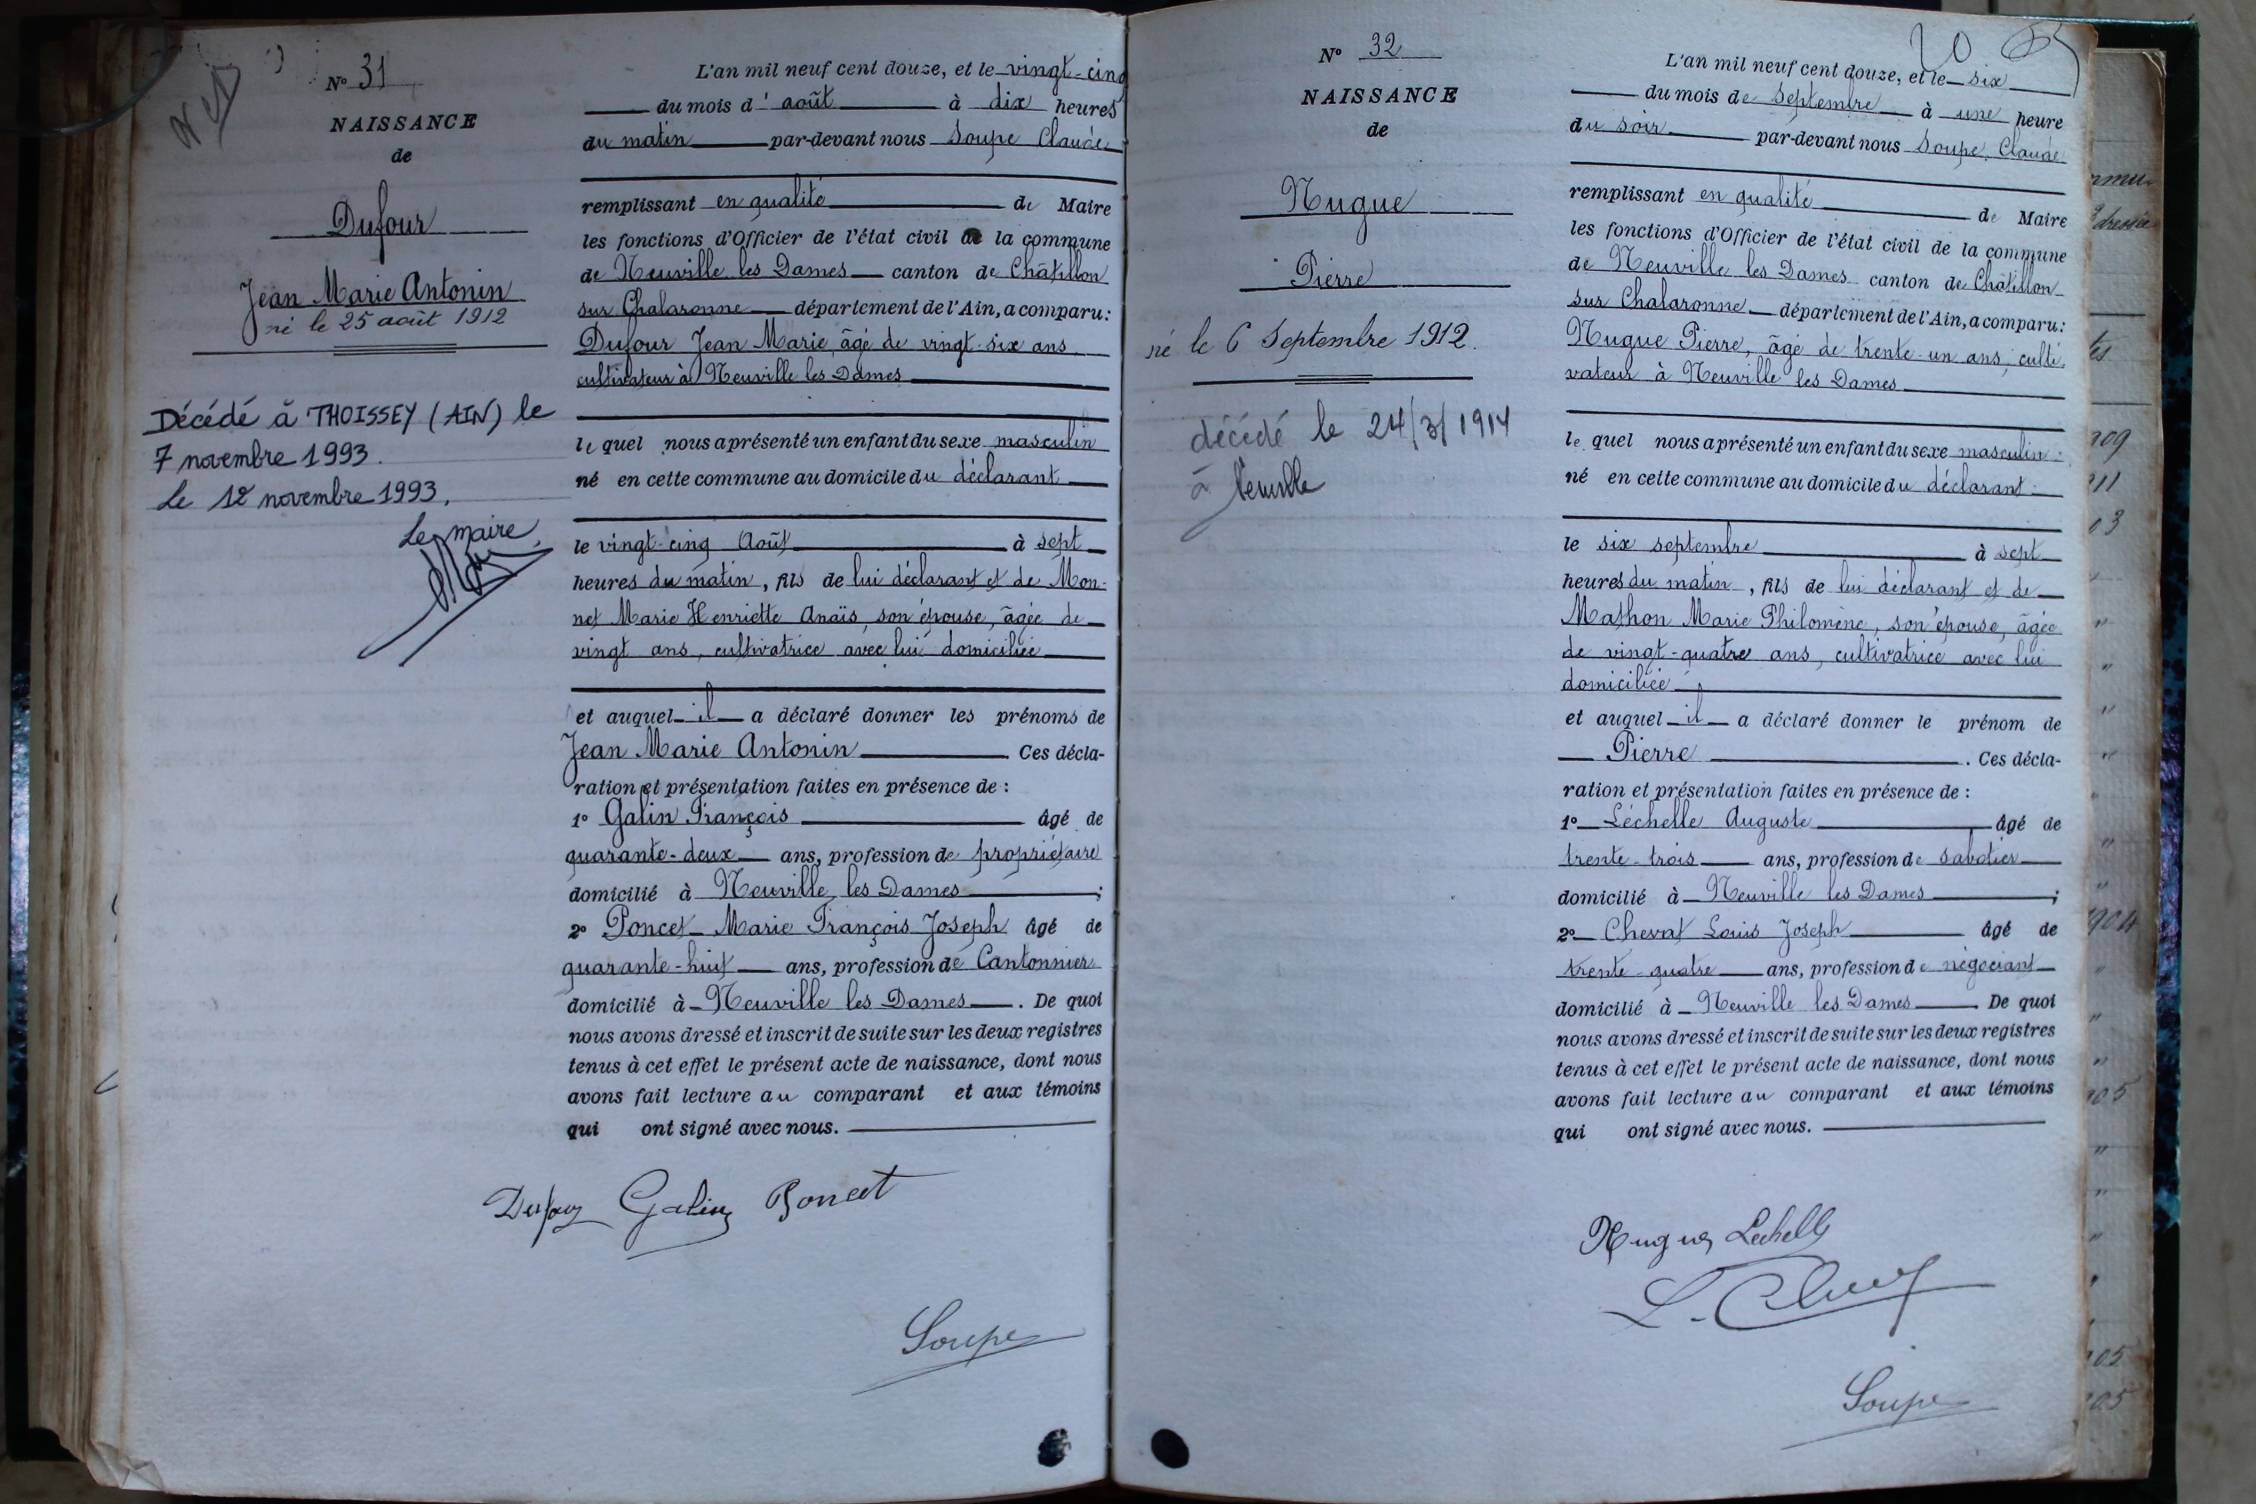 N° 31
NAISSANCE
de
Dufour
Jean Marie Antonin
né le 25 août 1912
Décédé à THOISSEY (AIN) le
7 novembre 1993.
Le 12 novembre 1993.
Le maire,
L'an mil neuf cent douze, et le vingt-cinq
du mois d'août à dix heures
du matin par-devant nous Soupe Claude
remplissant en qualité de Maire
les fonctions d'Officier de l'état civil de la commune
de Neuville les Dames canton de Châtillon
sur Chalaronne département de l'Ain, a comparu:
Dufour Jean Marie, âgé de vingt-six ans
cultivateur à Neuville les Dames
lequel nous a présenté un enfant du sexe masculin
né en cette commune au domicile du déclarant
le vingt-cinq Août à sept
heures du matin, fils de lui déclarant et de Mon-
net Marie Henriette Anaïs, son épouse, âgée de
vingt ans, cultivatrice avec lui domiciliée
et auquel il a déclaré donner les prénoms de
Jean Marie Antonin Ces décla-
ration et présentation faites en présence de :
1° Galin François âgé de
quarante-deux ans, profession de propriétaire
domicilié à Neuville les Dames ;
2° Poncet Marie François Joseph âgé de
quarante-huit ans, profession de Cantonnier
domicilié à Neuville les Dames . De quoi
nous avons dressé et inscrit de suite sur les deux registres
tenus à cet effet le présent acte de naissance, dont nous
avons fait lecture au comparant et aux témoins
qui ont signé avec nous.
Dufour Galin Poncet
Soupe
N° 32
NAISSANCE
de
Nugue
Pierre
né le 6 Septembre 1912.
décédé le 24/3/1914
à Neuville
20
L'an mil neuf cent douze, et le six
du mois de Septembre à une heure
du soir par-devant nous Soupe, Claude
remplissant en qualité de Maire
les fonctions d'Officier de l'état civil de la commune
de Neuville les Dames canton de Châtillon
sur Chalaronne département de l'Ain, a comparu:
Nugue Pierre, âgé de trente-un ans, culti-
vateur à Neuville les Dames
lequel nous a présenté un enfant du sexe masculin
né en cette commune au domicile du déclarant
le six septembre à sept
heures du matin, fils de lui déclarant et de
Mathon Marie Philomène, son épouse, âgée
de vingt-quatre ans, cultivatrice avec lui
domiciliée
et auquel il a déclaré donner le prénom de
Pierre . Ces décla-
ration et présentation faites en présence de :
1° Léchelle Auguste âgé de
trente-trois ans, profession de sabotier
domicilié à Neuville les Dames ;
2° Chevat Louis Joseph âgé de
trente-quatre ans, profession de négociant
domicilié à Neuville les Dames De quoi
nous avons dressé et inscrit de suite sur les deux registres
tenus à cet effet le présent acte de naissance, dont nous
avons fait lecture au comparant et aux témoins
qui ont signé avec nous.
Nugue Lechelle
Soupe